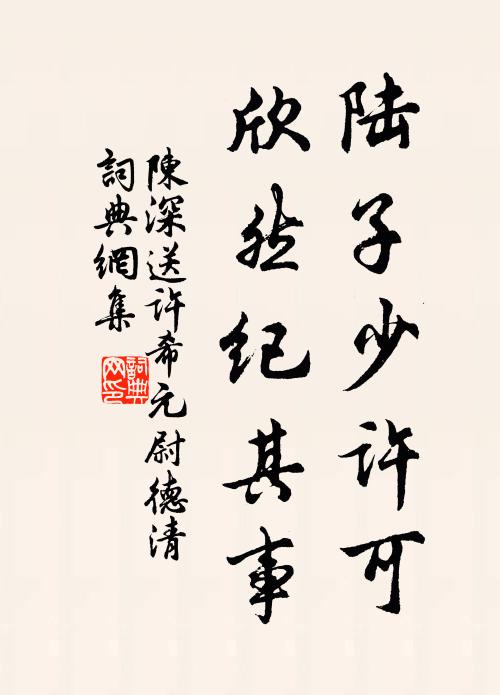 陆子少许可
欣然纪其事
陳深送許希元尉德清
詞典網集
詞典网印